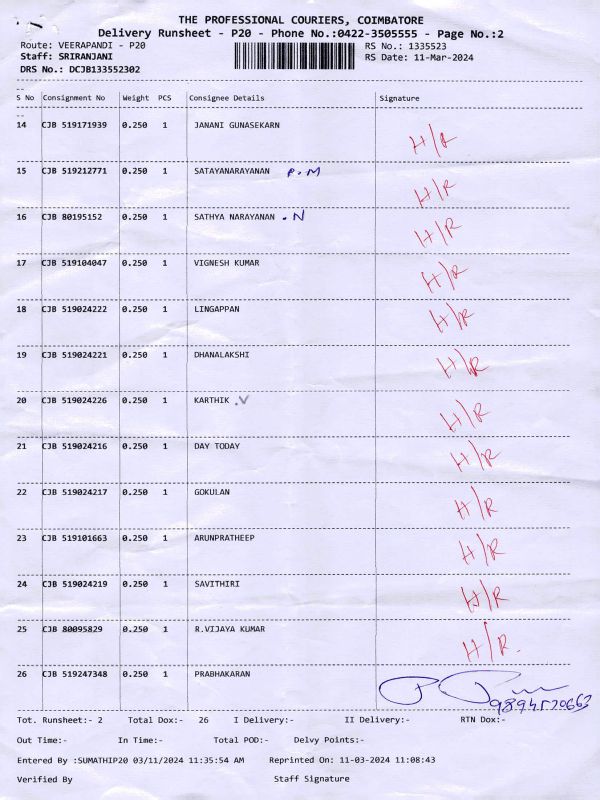 THE PROFESSIONAL COURIERS, COIMBATORE
Delivery Runsheet - P20 - Phone No.:0422-3505555 - Page No.:2
Route: VEERAPANDI - P20 RS No.: 1335523
Staff: SRIRANJANI RS Date: 11-Mar-2024
DRS No.: DCJB133552302
S No Consignment No Weight PCS Consignee Details Signature
14 CJB 519171939 0.250 1 JANANI GUNASEKARN H/R
15 CJB 519212771 0.250 1 SATAYANARAYANAN P.M H/R
16 CJB 80195152 0.250 1 SATHYA NARAYANAN .N H/R
17 CJB 519104047 0.250 1 VIGNESH KUMAR H/R
18 CJB 519024222 0.250 1 LINGAPPAN H/R
19 CJB 519024221 0.250 1 DHANALAKSHI H/R
20 CJB 519024226 0.250 1 KARTHIK .V H/R
21 CJB 519024216 0.250 1 DAY TODAY H/R
22 CJB 519024217 0.250 1 GOKULAN H/R
23 CJB 519101663 0.250 1 ARUNPRATHEEP H/R
24 CJB 519024219 0.250 1 SAVITHIRI H/R
25 CJB 80095829 0.250 1 R.VIJAYA KUMAR H/R.
26 CJB 519247348 0.250 1 PRABHAKARAN
Tot. Runsheet:- 2 Total Dox:- 26 I Delivery:- II Delivery:- RTN Dox:-
Out Time:- In Time:- Total POD:- Delvy Points:-
Entered By :SUMATHIP20 03/11/2024 11:35:54 AM Reprinted On: 11-03-2024 11:08:43
Verified By Staff Signature